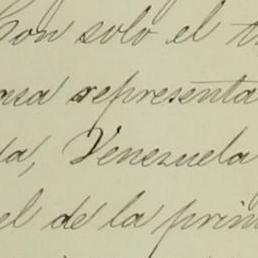 Con solo el t
nsa representa
da, Venezuela
el de la prim